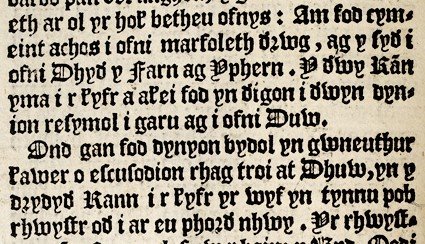 eth ar ol yr hoƚ betheu ofnys : Am fod cym-
eint achos i ofni marfoleth đrwg, ag y ſyđ i
ofni Dhyđ y Farn ag Yphern . Y đwy Rān
yma i r ƚyfr a aƚei fod yn đigon i đwyn dyn-
ion reſymol i garu ag i ofni Duw.
Ond gan fod dynyon bydol yn gwneuthur
ƚawer o eſcuſodion rhag troi at Dhuw, yn y
drydyđ Rann i r ƚyfr yr wyf yn tynnu pob
rhwyſtr ođ i ar eu phorđ nhwy . Yr rhwyſt-